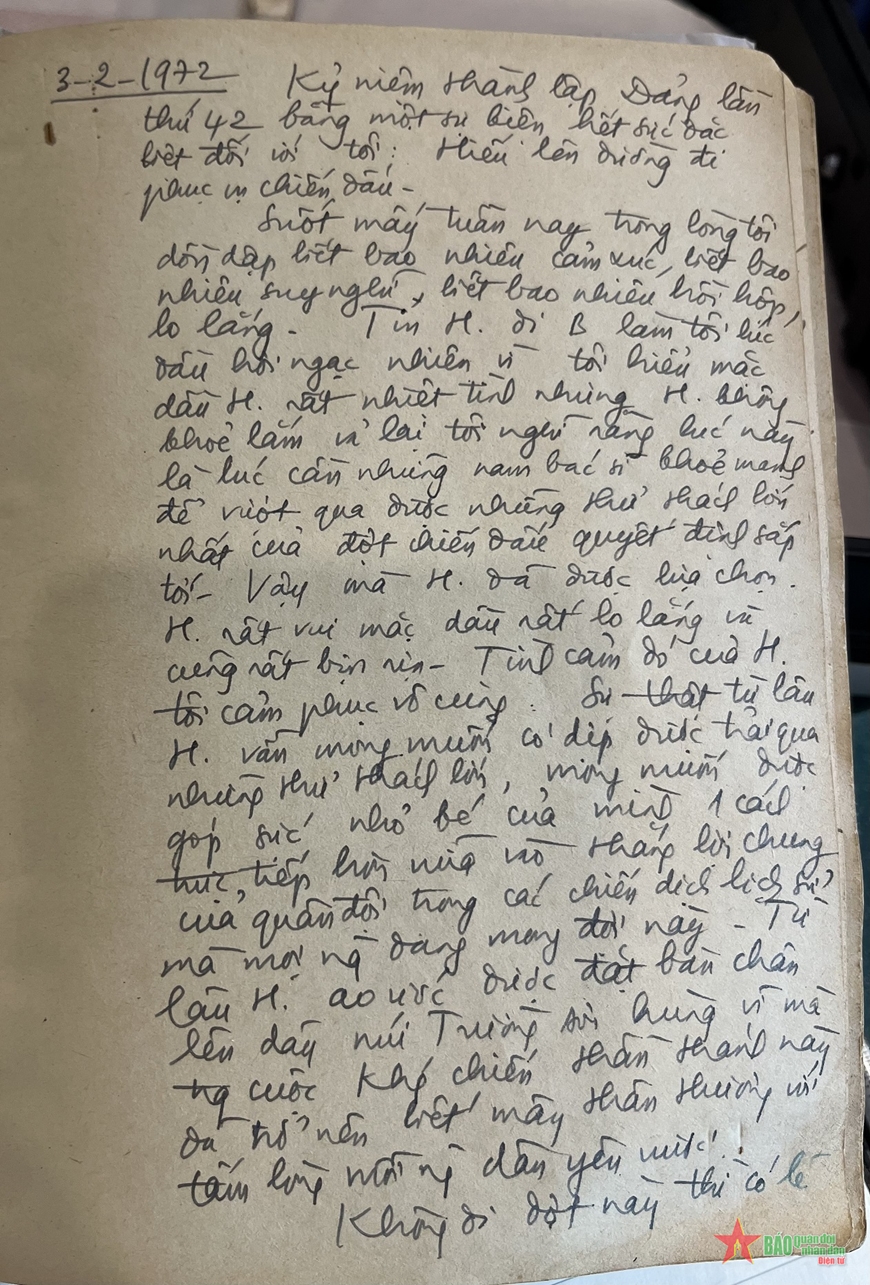 3-2-1972 Kỷ niệm thành lập Đảng lần
thứ 42 bằng một sự kiện hết sức đặc
biệt đối với tôi: Hiếu lên đường đi
phục vụ chiến đấu -
Suốt mấy tuần nay trong lòng tôi
dồn dập biết bao nhiêu cảm xúc, biết bao
nhiêu suy nghĩ, biết bao nhiêu hồi hộp,
lo lắng - Tin H. đi B làm tôi lúc
đầu hơi ngạc nhiên vì tôi hiểu mặc
dầu H. rất nhiệt tình nhưng H. không
khoẻ lắm vả lại tôi nghĩ rằng lúc này
là lúc cần những nam bác sĩ khoẻ mạnh
để vượt qua được những thử thách lớn
nhất của đợt chiến đấu quyết định sắp
tới - Vậy mà H. đã được lựa chọn.
H. rất vui mặc dầu rất lo lắng và
cũng rất bịn rịn - Tình cảm đó của H.
tôi cảm phục vô cùng. Sự thật từ lâu
H. vẫn mong muốn có dịp được trải qua
những thử thách lớn, mong muốn được
góp sức nhỏ bé của mình 1 cách
tiếp hơn nữa vào thắng lợi chung
của quân đội trong các chiến dịch lịch sử
mà mọi ng đang mong đợi này - Từ
lâu H. ao ước được đặt bàn chân
lên dãy núi Trường Sơn hùng vĩ mà
ng cuộc Kh/ chiến thần thánh này
đã trở nên biết mấy thân thương với
tấm lòng mỗi ng dân yêu nước.
Không đi đợt này thì có lẽ
BÁO quân đội nhân dân
Điện tử